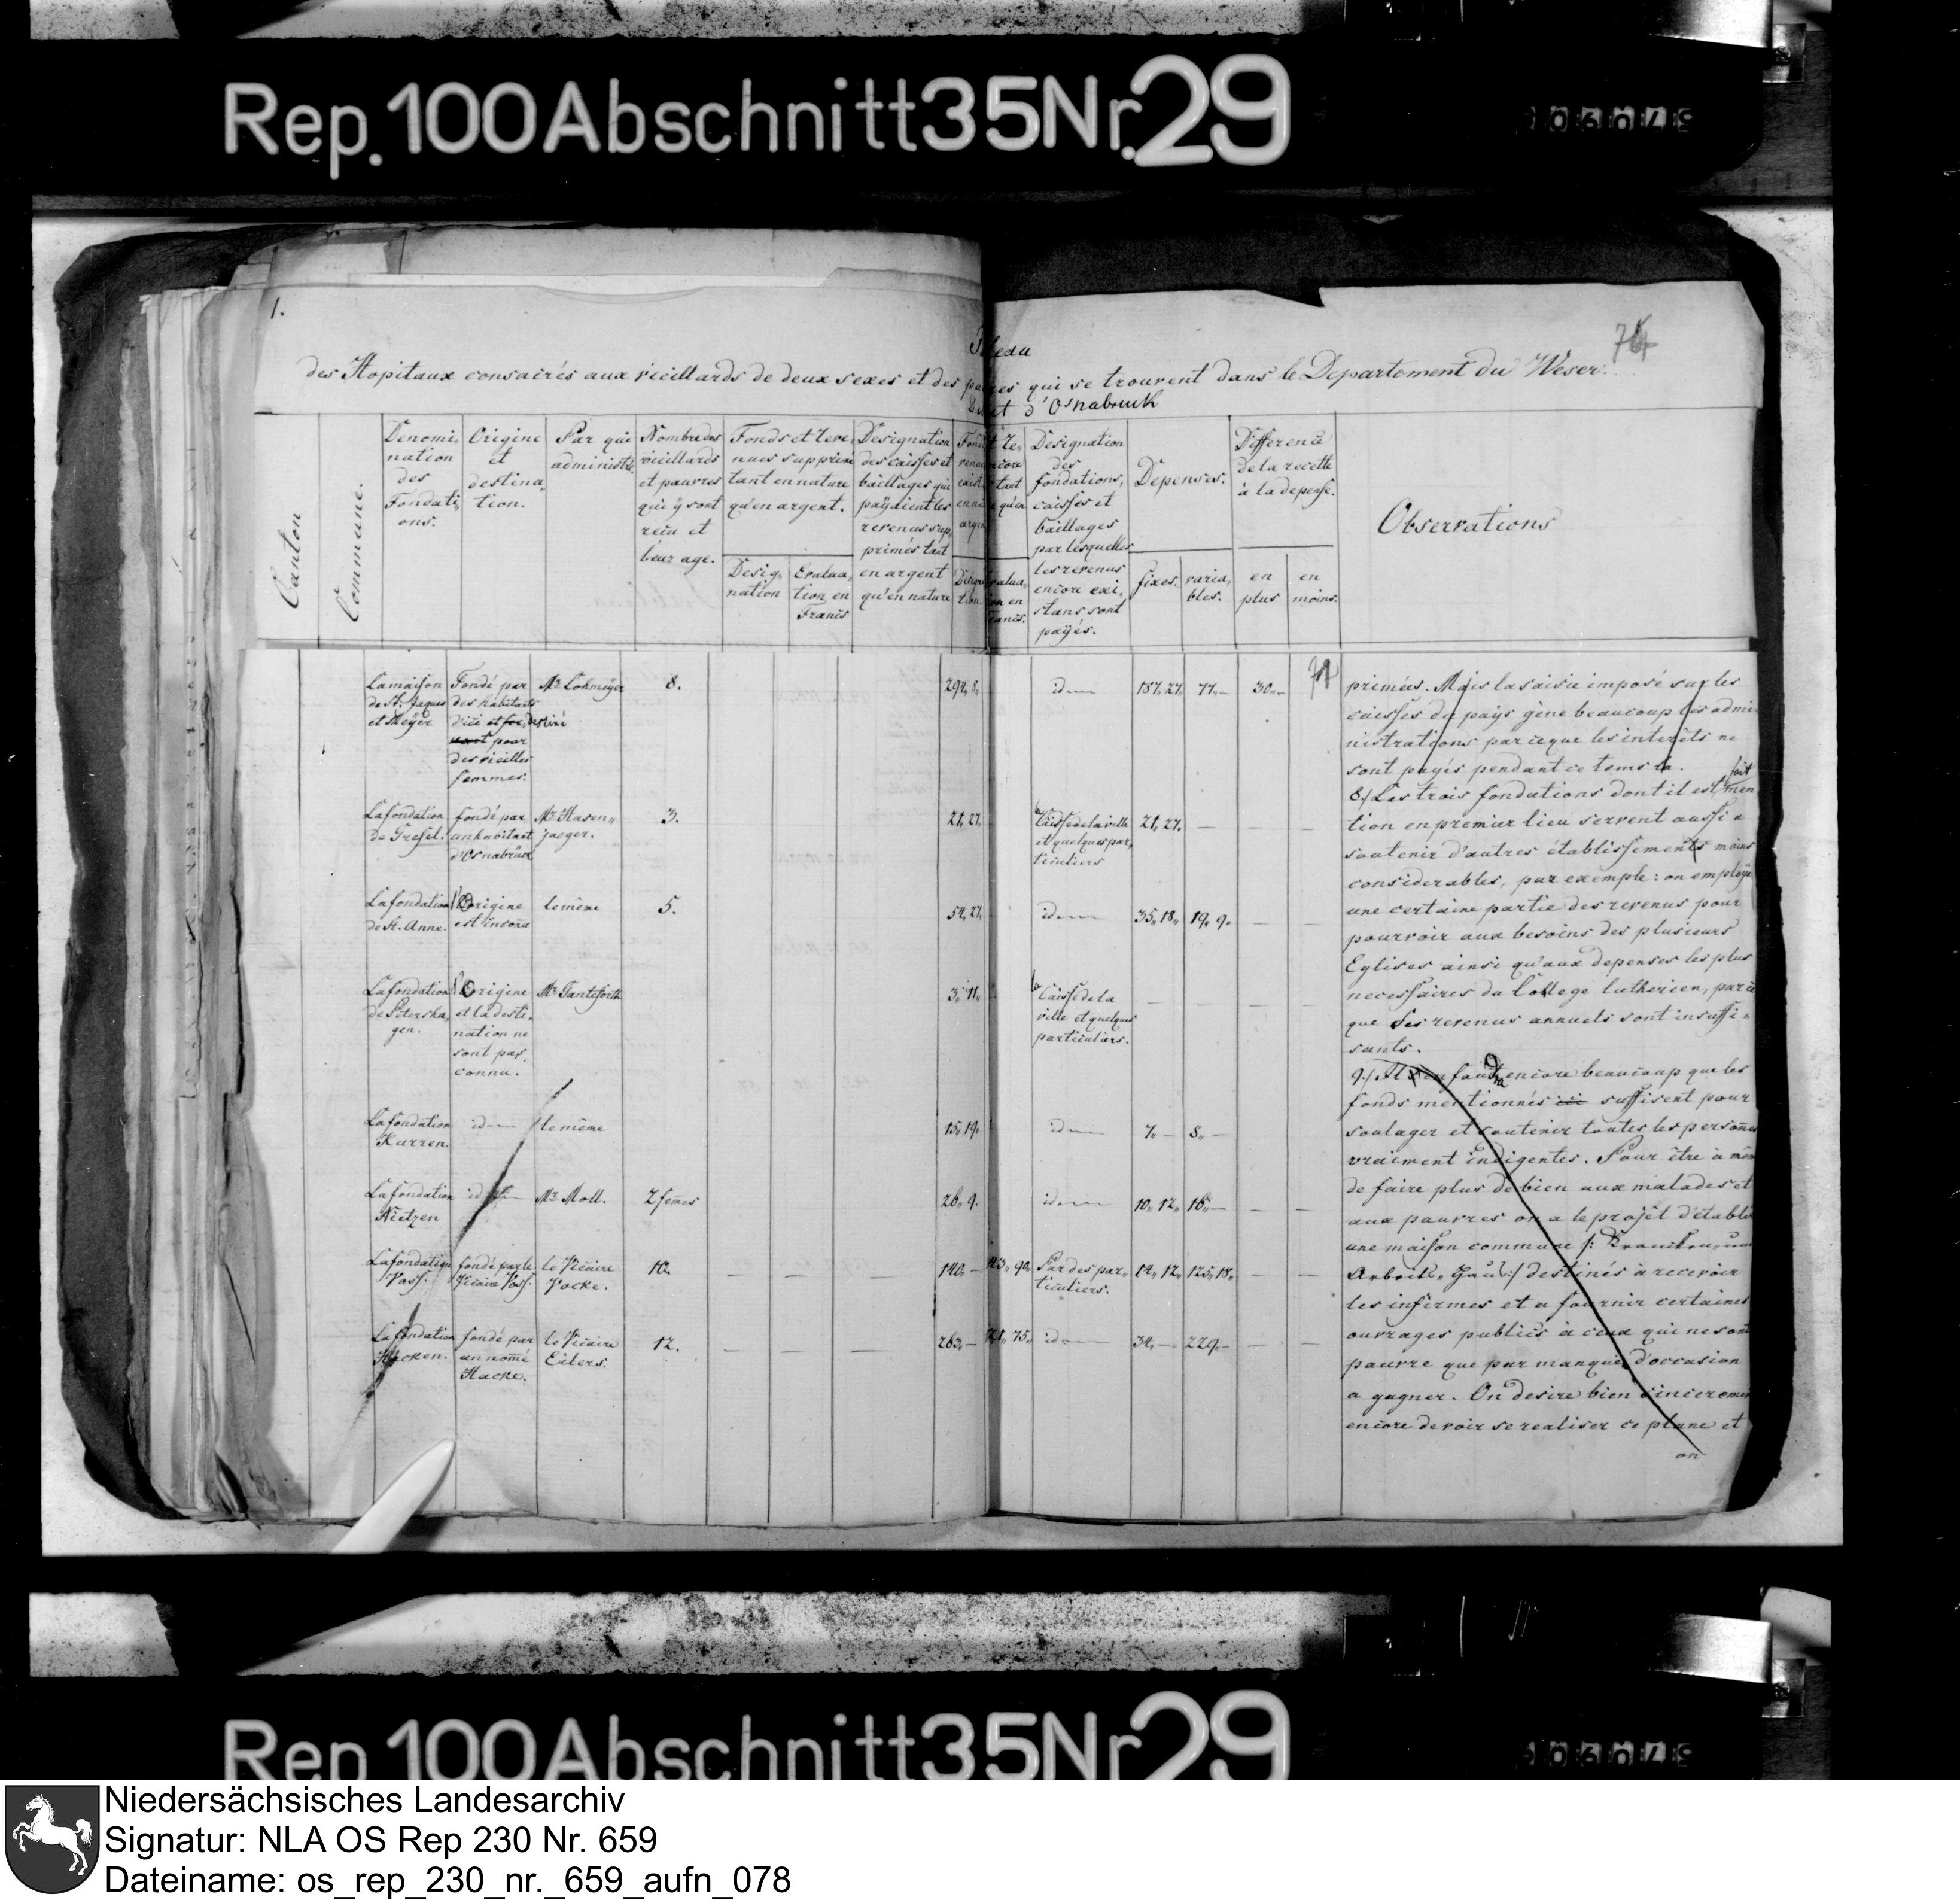 Rep. 100 Abschnitt 35 Nr. 29
1.
Tableau
des Hopitaux consacrés aux vieillards de deux sexes et des pauvres qui se trouvent dans le Departement du Weser.
d'Osnabruck
Canton
Commune.
Denomi-
nation
des
Fondati-
ons.
Origine
et
destina-
tion.
Par qui
administré.
Nombre des
vieillards
et pauvres
qui y sont
reçu et
leur age.
Fonds et reve-
nues supprimés
tant en nature
qu'en argent.
Desig-
nation
Evalua-
tion en
Francs
Designation
des caisses et
bailliages qui
payaient les
revenus sup-
primés tant
en argent
qu'en nature
Designation
des
fondations,
caisses et
bailliages
par lesquelles
les revenus
encore exi-
stans sont
payés.
Depenses.
fixes.
varia-
bles.
Difference
de la recette
à la depense.
en
plus
en
moins.
Observations
La maison
de St. Jaques
et Meÿer
Fondé par
des habitants
d'ici destiné
pour
des vieilles
femmes.
Mr. Lohmeyer
8.
294,, 8,,
idem
187,, 27,,
77,, —
30,, —
La fondation
de Gresel.
fondé par
un habitant
d'Osnabrück
Mr. Hasen-
jaeger.
3.
21,, 27,,
la Caisse de la ville
et quelques par-
ticuliers
21,, 27,,
—
—
—
La fondation
de St. Anne.
l'Origine
est inconu
le même
5.
54,, 27,,
idem
35,, 18,,
19,, 9,,
—
—
La fondation
de Petersha-
gen.
l'Origine
et la desti-
nation ne
sont pas
connu.
Mr.
3,, 11,,
la Caisse de la
ville et quelques
particuliers.
—
—
—
—
La fondation
Kurren.
idem
le même
15,, 19,,
idem
7,, —
8,, —
La fondation
Nietzen
idem
Mr. Moll.
2 femes
26,, 9.
idem
10,, 12,,
16,, —
—
—
La fondation
Voss.
fondé par le
Vicaire Voss.
le Vicaire
Vocke.
10.
—
—
—
140,, —
90,,
Par des par-
ticuliers.
14,, 12,,
125,, 18,,
—
—
La fondation
Hacken.
fondé par
un nomé
Hacke.
le Vicaire
Eilers.
12.
—
—
—
263,, —
75,,
idem
34,, —
229,, —
—
—
primées. Mais la saisie imposé sur les
caisses du pays gène beaucoup les admi-
nistrations parceque les interêts ne
sont payés pendant ce tems la.
8./ Les trois fondations dont il est fait men
tion en premier lieu servent aussi a
soutenir d'autres établissements moins
considerables, par exemple: on employe
une certaine partie des revenus pour
pourvoir aux besoins des plusieurs
Eglises ainsi qu'aux depenses les plus
necessaires du College lutherien, parce
que ses revenus annuels sont insuffi-
sants.
9./ Il faudra encore beaucoup que les
fonds mentionnés suffisent pour
soulager et soutenir toutes les persones
vraiment indigentes. Pour être à même
de faire plus de bien aux malades et
aux pauvres on a le projêt d'établir
une maison commune
destinés à recevoir
les infirmes et a fournir certaines
ouvrages publics à ceux qui ne sont
pauvre que par manque d'occasion
a gagner. On desire bien sincerement
encore de voir se realiser ce plane et
on
Rep. 100 Abschnitt 35 Nr. 29
Niedersächsisches Landesarchiv
Signatur: NLA OS Rep 230 Nr. 659
Dateiname: os_rep_230_nr._659_aufn_078